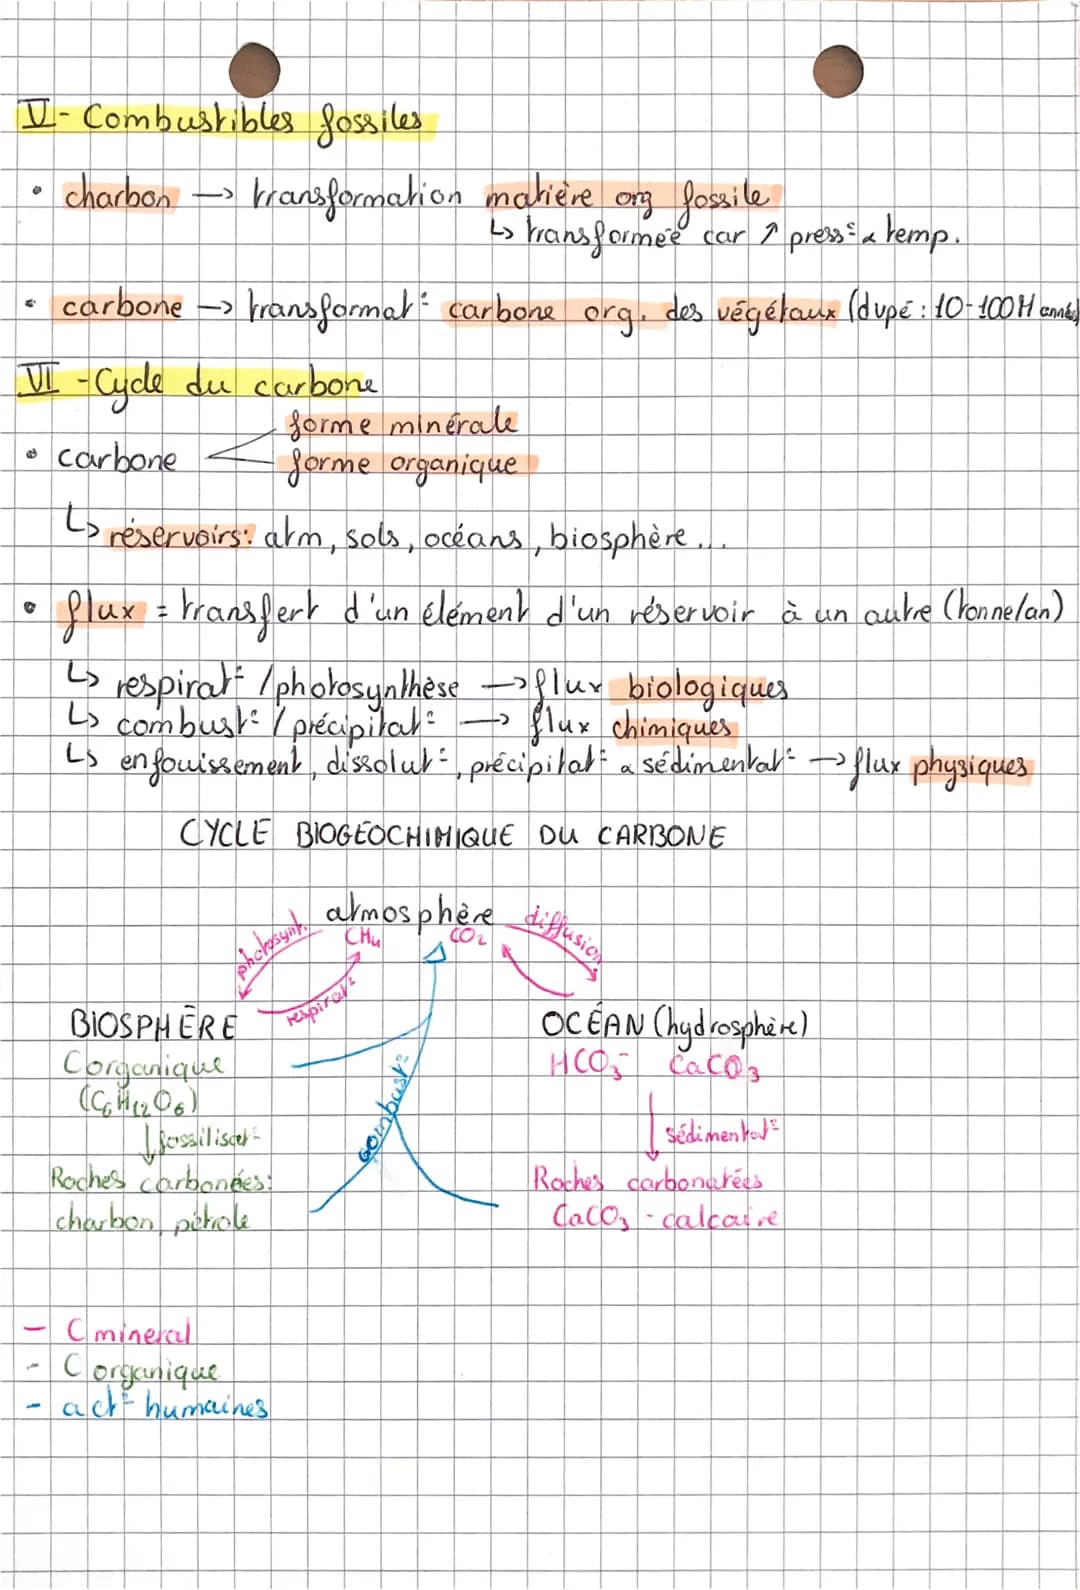 V- Combustibles fossiles
• charbon → transformation matière org fossile
↳ transformée car ↗ press° & temp.
• carbone → transformat° carbone org. des végétaux (dupé : 10-100M années)
VI - Cycle du carbone
forme minérale
• carbone
forme organique
↳ réservoirs: atm, sols, océans, biosphère...
• flux = transfert d'un élément d'un réservoir à un autre (tonne/an)
↳ respirat° / photosynthèse → flux biologiques
↳ combust° / précipitat° → flux chimiques
↳ enfouissement, dissolut°, précipitat° & sédimentat° → flux physiques
CYCLE BIOGÉOCHIMIQUE DU CARBONE
atmosphère
photosynt.
CH4
CO2
diffusion
respirat°
BIOSPHÈRE
OCÉAN (hydrosphère)
C organique
HCO3⁻ CaCO3
(C6H12O6)
combust°
↓ fossilisat°
↓ sédimentat°
Roches carbonées:
Roches carbonatées
charbon, pétrole
CaCO3 - calcaire
- C mineral
- C organique
- act° humaines